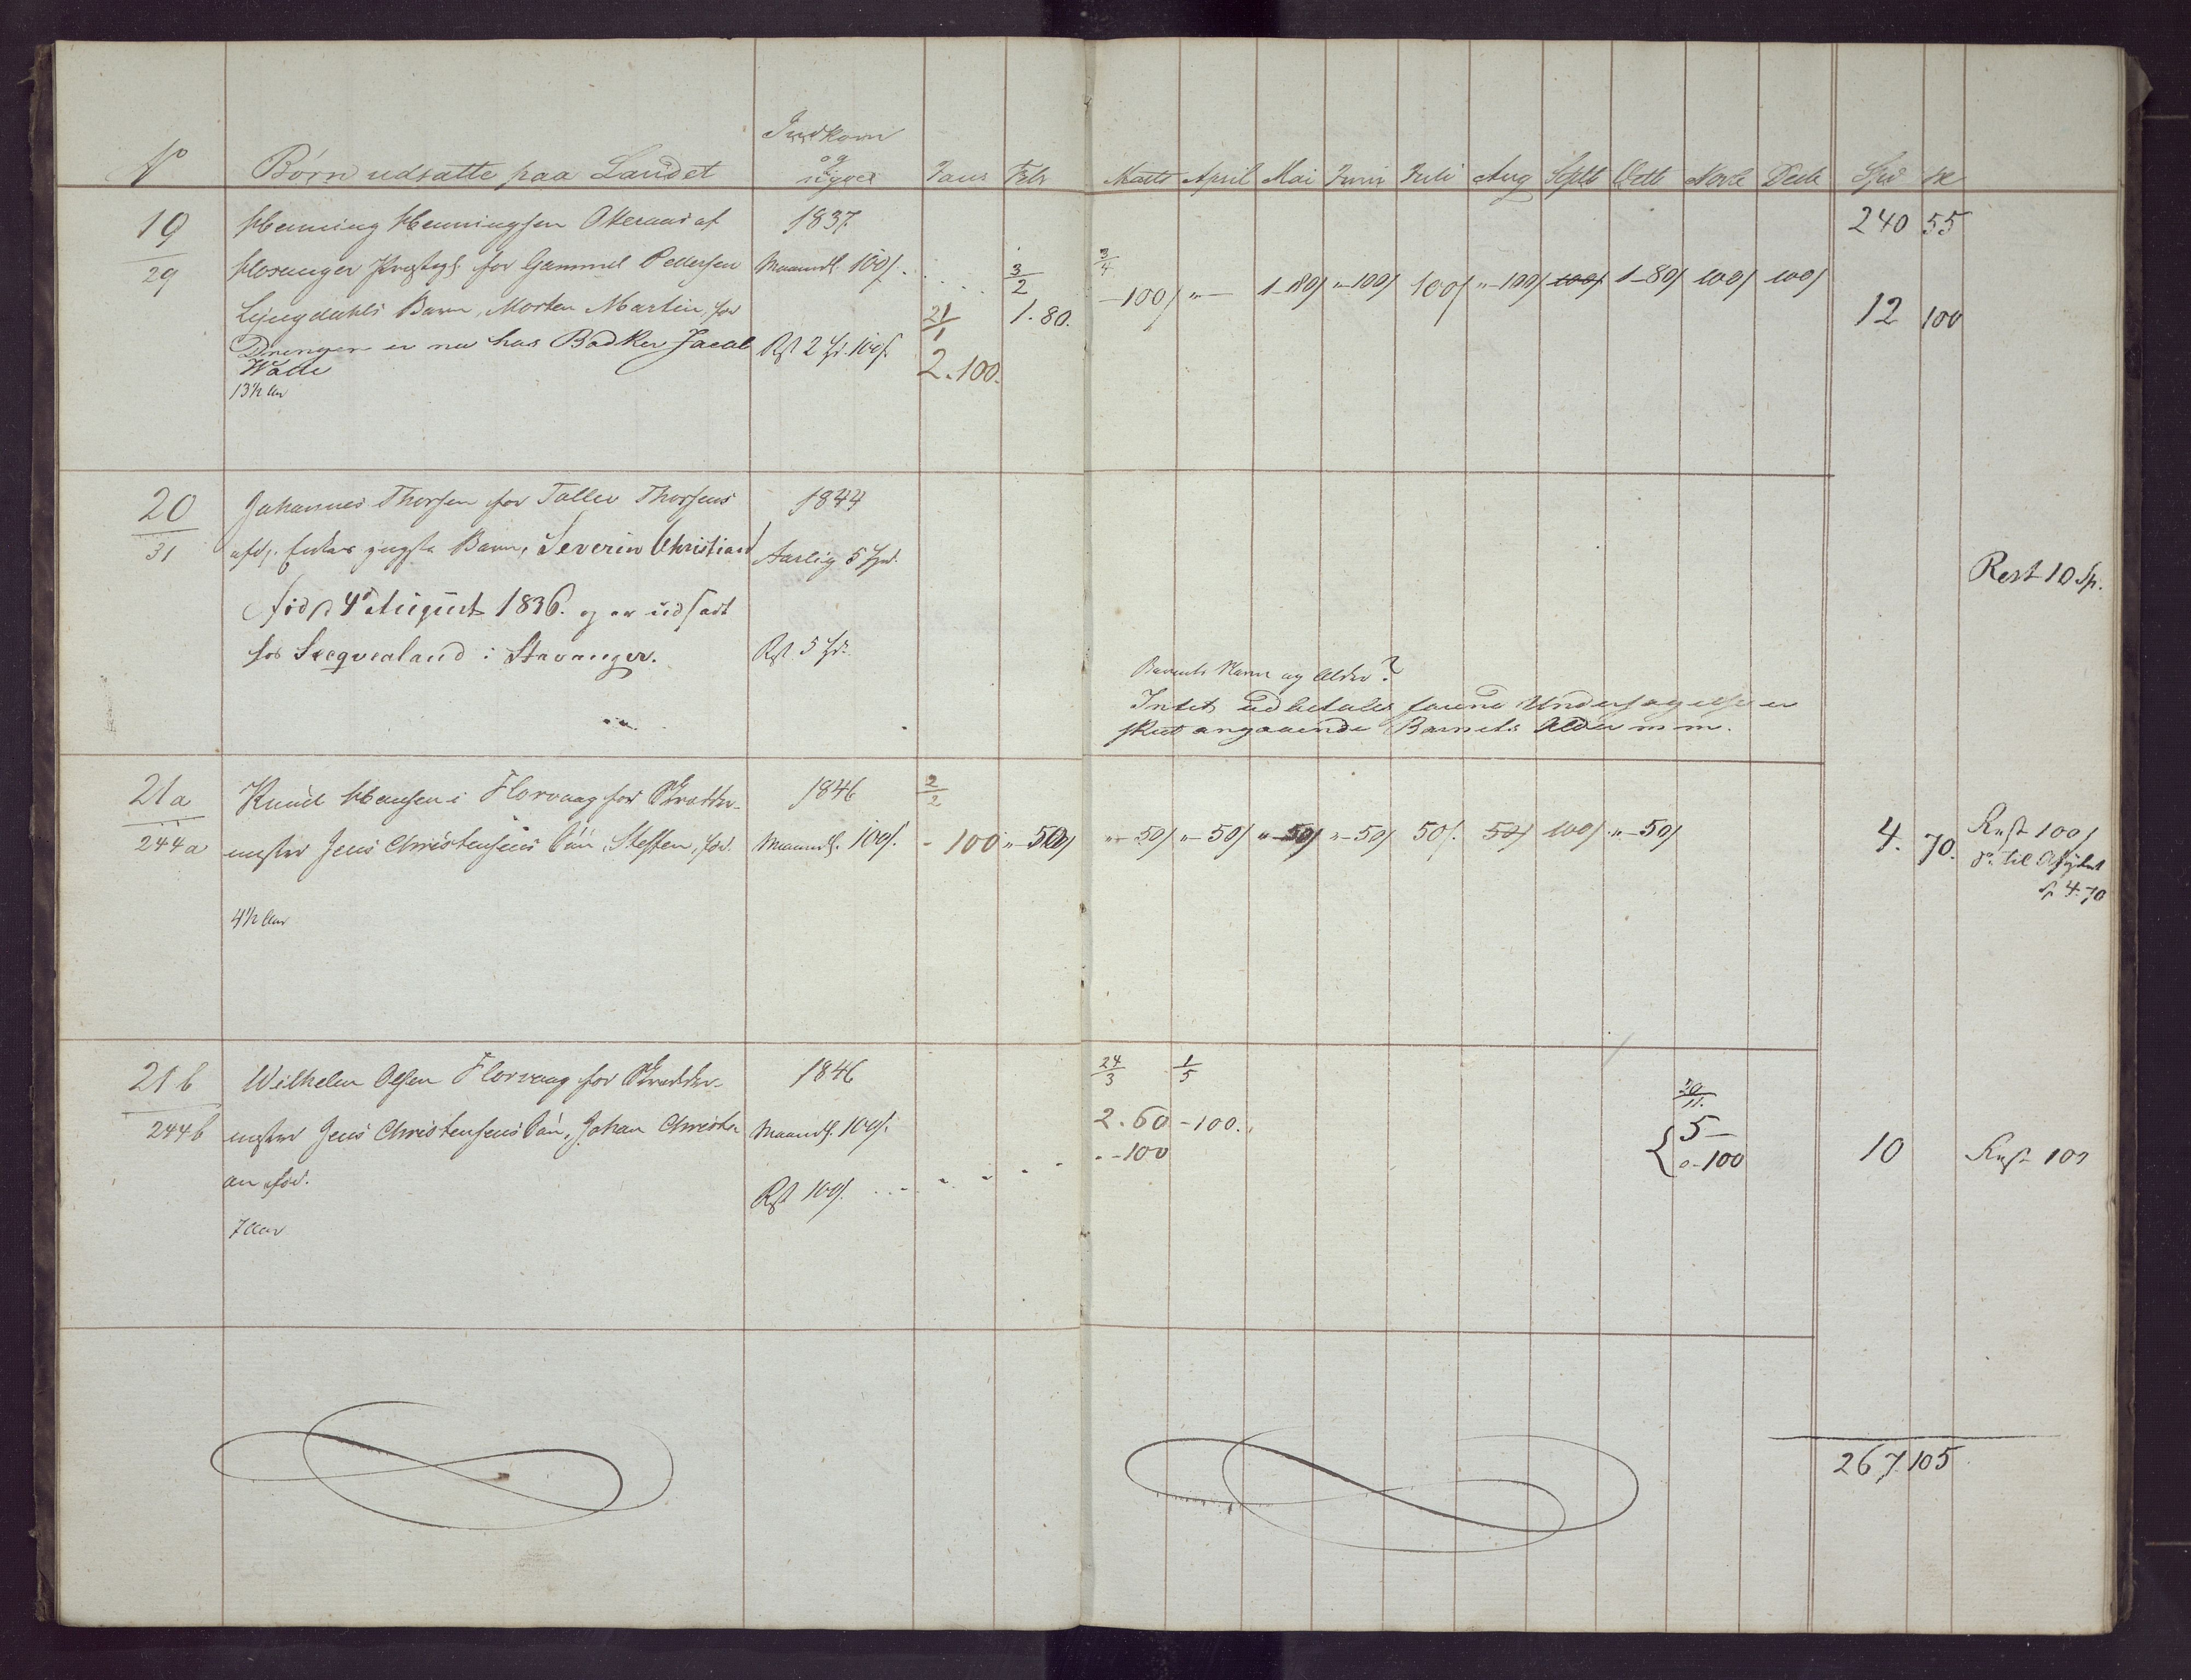 No Børn udsatte paa Landet Indkom og Janr Febr Marts April Mai Juni Juli Aug Septb Octb Novb Decb Spd sk
240 55
19
29
Henning Henningsen Okeraas af
Hosanger Præstegj. for Gammel Pedersen
Ljungdahls Barn, Morten Martin, fød
Drengen er nu hos Bødker Jacob
Walle
13½ Aar
1837
Maanedl. 100s.
Rst 2 Sp. 100s.
21/1
2.100.
3/2
1.80.
3/4
-100s "- 1-80s "-100s 100s "-100s 100s 1-80s 100s 100s
12 100
20
31
Johannes Thorsen for Tollev Thorsens
afd. Enkes yngste Barn, Severin Christian
fød d 4de August 1836. og er udsadt
hos Seegvealand i Stavanger.
1844
Aarlig 5 Spd.
Rst 5 Sp.
Barnets Navn og Alder?
Intet udbetales førend Undersøgelse er
skeet angaaende Barnets Alder m m.
Rest 10 Sp.
21a
244a
Knud Hansen i Florvaag for
Jens Christensens Søn, Steffen, fød.
4½ Aar
1846
Maanedl. 100s.
2/2
-100 "-50s "-50s "-50s "-50s "-50s 50s. 50s 100s "-50s
4. 70.
Rest 100s
do. til Asylet
Sp 4-70
21b
244b
Wilhelm Olsen Florvaag for
Jens Christensens Søn, Johan Christi
an fød.
7 Aar
1846
Maanedl. 100s.
Rst 100s.
24/3
2.60
"-100
1/5
-100.
20/11.
5-
"-100
10
Rest 100
267 105